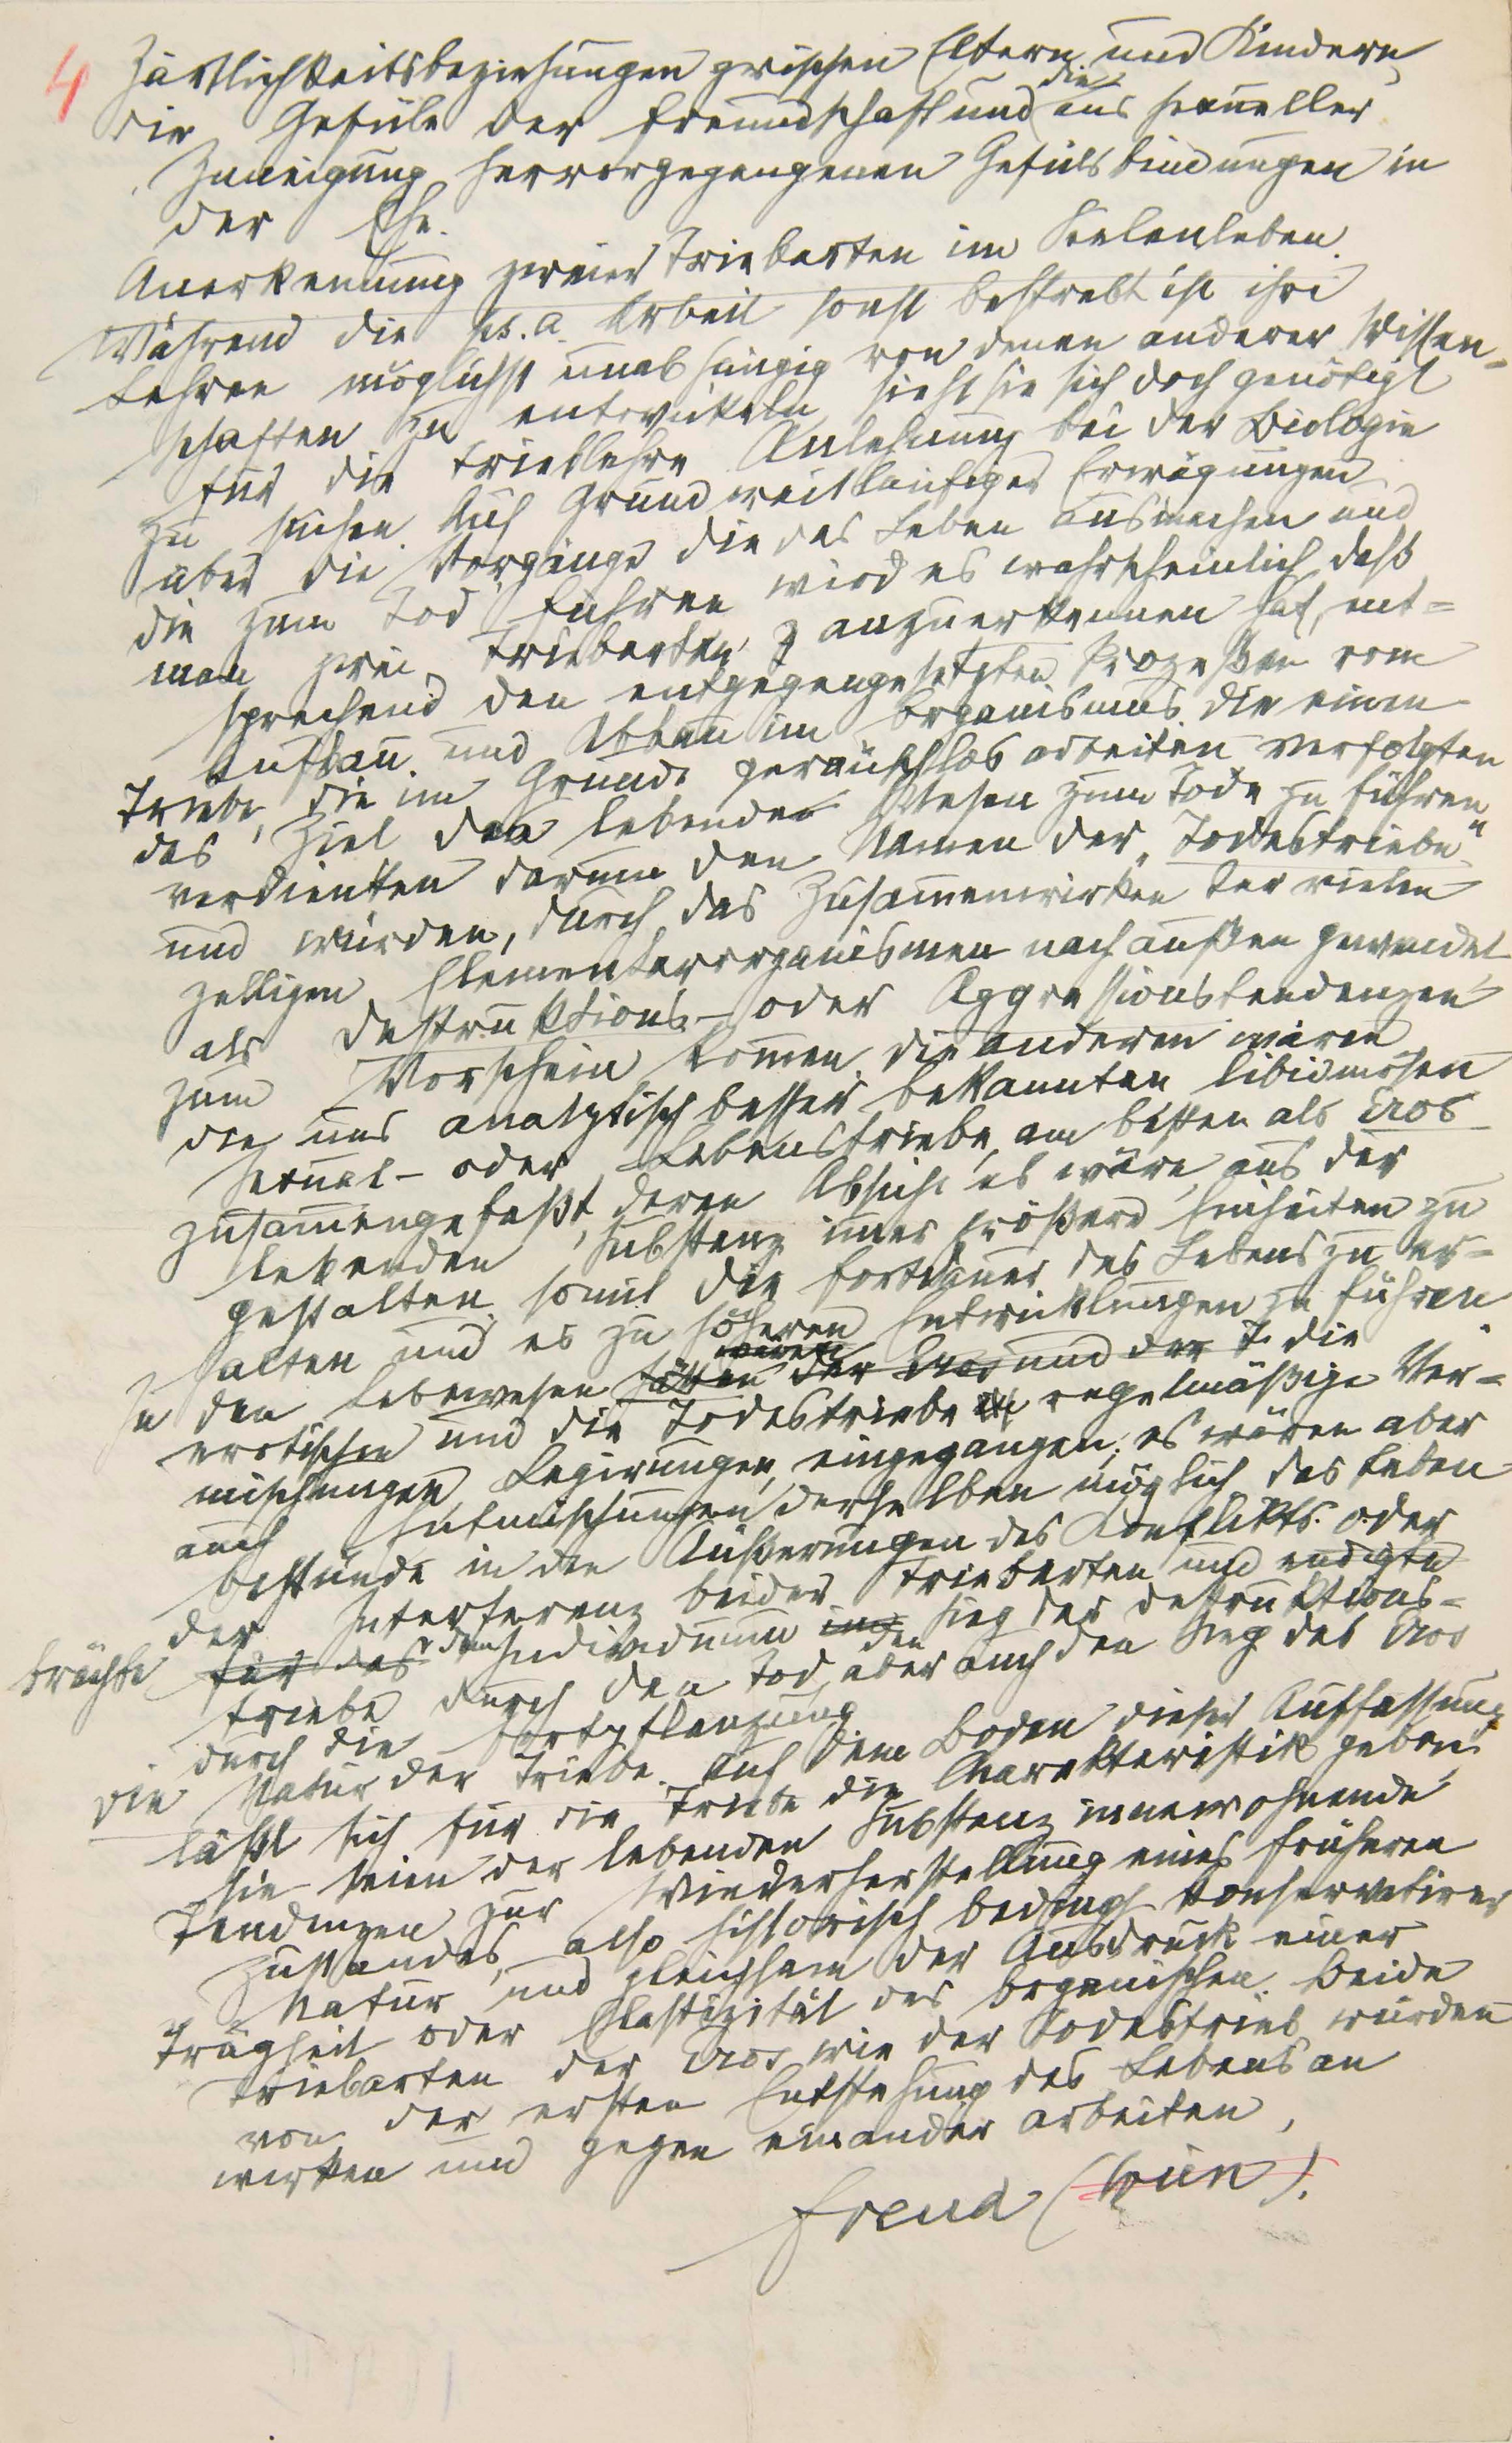 4
Zärtlichkeitsbeziehungen zwischen Eltern und Kindern,
die Gefüle der Freundschaft und die aus sexueller
Zuneigung hervorgegangenen Gefülsbindungen in
der Ehe.
Anerkennung zweier Triebarten im Seelenleben.
Während die ps.a. Arbeit sonst bestrebt ist ihre
Lehren möglichst unabhängig von denen anderer Wissen=
schaften zu entwickeln, sieht sie sich doch genötigt
für die Trieblehre Anlehnung bei der Biologie
zu suchen. Auf Grund weitläufiger Erwägungen
über die Vorgänge die das Leben ausmachen und
die zum Tod führen wird es wahrscheinlich, daß
man zwei Triebarten anzuerkennen hat, ent=
sprechend den entgegengesetzten Prozeßen vom
Aufbau und Abbau im Organismus. Die einen
Triebe, die im Grunde geräuschlos arbeiten verfolgten
das Ziel das lebende Wesen zum Tode zu führen,
verdienten darum den Namen der „Todestriebe"
und würden, durch das Zusammenwirken der vielen
zelligen Elementarorganismen nach außen gewendet
als Destruktions- oder Aggressionstendenzen
zum Vorschein kommen. Die anderen wären
die uns analytisch besser bekannten libidinösen
Sexual- oder Lebenstriebe, am besten als Eros
zusammengefaßt, deren Absicht es wäre, aus der
lebenden Substanz immer größere Einheiten zu
gestalten, somit die Fortdauer des Lebens zu er=
halten und es zu höheren Entwicklungen zu führen.
In den Lebewesen hätten wären der Eros und der T. die
erotischen und die Todestriebe regelmäßige Ver=
mischungen, Legirungen, eingegangen; es wären aber
auch Entmischungen derselben möglich, das Leben
bestünde in den Äußerungen des Konflikts oder
der Interferenz beider Triebarten und endigte
brächte für das dem Individuum den Sieg der Destruktions=
triebe durch den Tod, aber auch den Sieg des Eros
durch die Fortpflanzung
Die Natur der Triebe. Auf dem Boden dieser Auffassung
läßt sich für die Triebe die Charakteristik geben,
sie seien der lebenden Substanz innewohnende
Tendenzen zur Wiederherstellung eines früheren
Zustandes, also historisch bedingt, konservativer
Natur und gleichsam der Ausdruck einer
Trägheit oder Elastizität des Organischen. Beide
Triebarten der Eros wie der Todestrieb würden
von der ersten Entstehung des Lebens an
wirken und gegen einander arbeiten,
Freud (Wien).